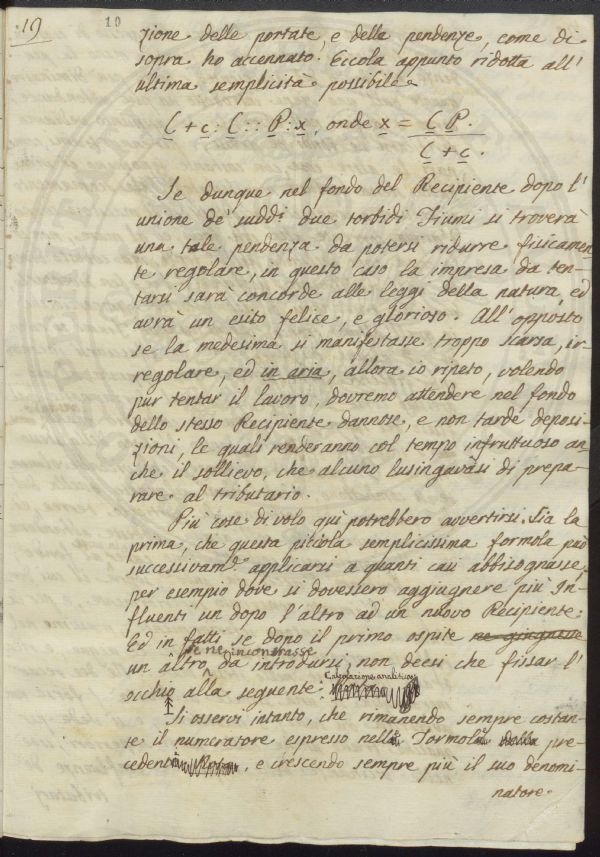 19 10
zione delle portate, e della pendenze, come di
sopra ho accennato. Eccola appunto ridotta all'
ultima semplicità possibile
C + c : C :: P : x, onde x = C P.
C + c.
Se dunque nel fondo del Recipiente dopo l'
unione de' sudd.i due torbidi Fiumi si troverà
una tale pendenza da potersi ridurre fisicamen
te regolare, in questo caso la impresa da ten-
tarsi sarà concorde alle leggi della natura, ed
avrà un esito felice, e glorioso. All'opposto
se la medesima si manifestasse troppo scarsa, ir-
regolare, ed in aria, allora io ripeto, volendo
pur tentar il lavoro, dovremo attendere nel fondo
dello stesso Recipiente dannose, e non tarde deposi-
zioni, le quali renderanno col tempo infruttuoso an
che il sollievo, che alcuno lusingavasi di prepa-
rare al tributario.
Più cose di volo quì potrebbero avvertirsi. Sia la
prima, che questa picciola semplicissima formola può
successivam.e applicarsi a quanti casi abbisognasse,
per esempio dove si dovessero aggiugnere più In-
fluenti un dopo l'altro ad un nuovo Recipiente:
Ed in fatti se dopo il primo ospite ne giugnesse
se ne incontrasse
un altro da introdursi, non deesi che fissar l'
Calcolazione analitica
occhio alla seguente
Si osservi intanto, che rimanendo sempre costan-
te il numeratore espresso nella Formola della pre-
cedente, e crescendo sempre più il suo denomi-
natore.